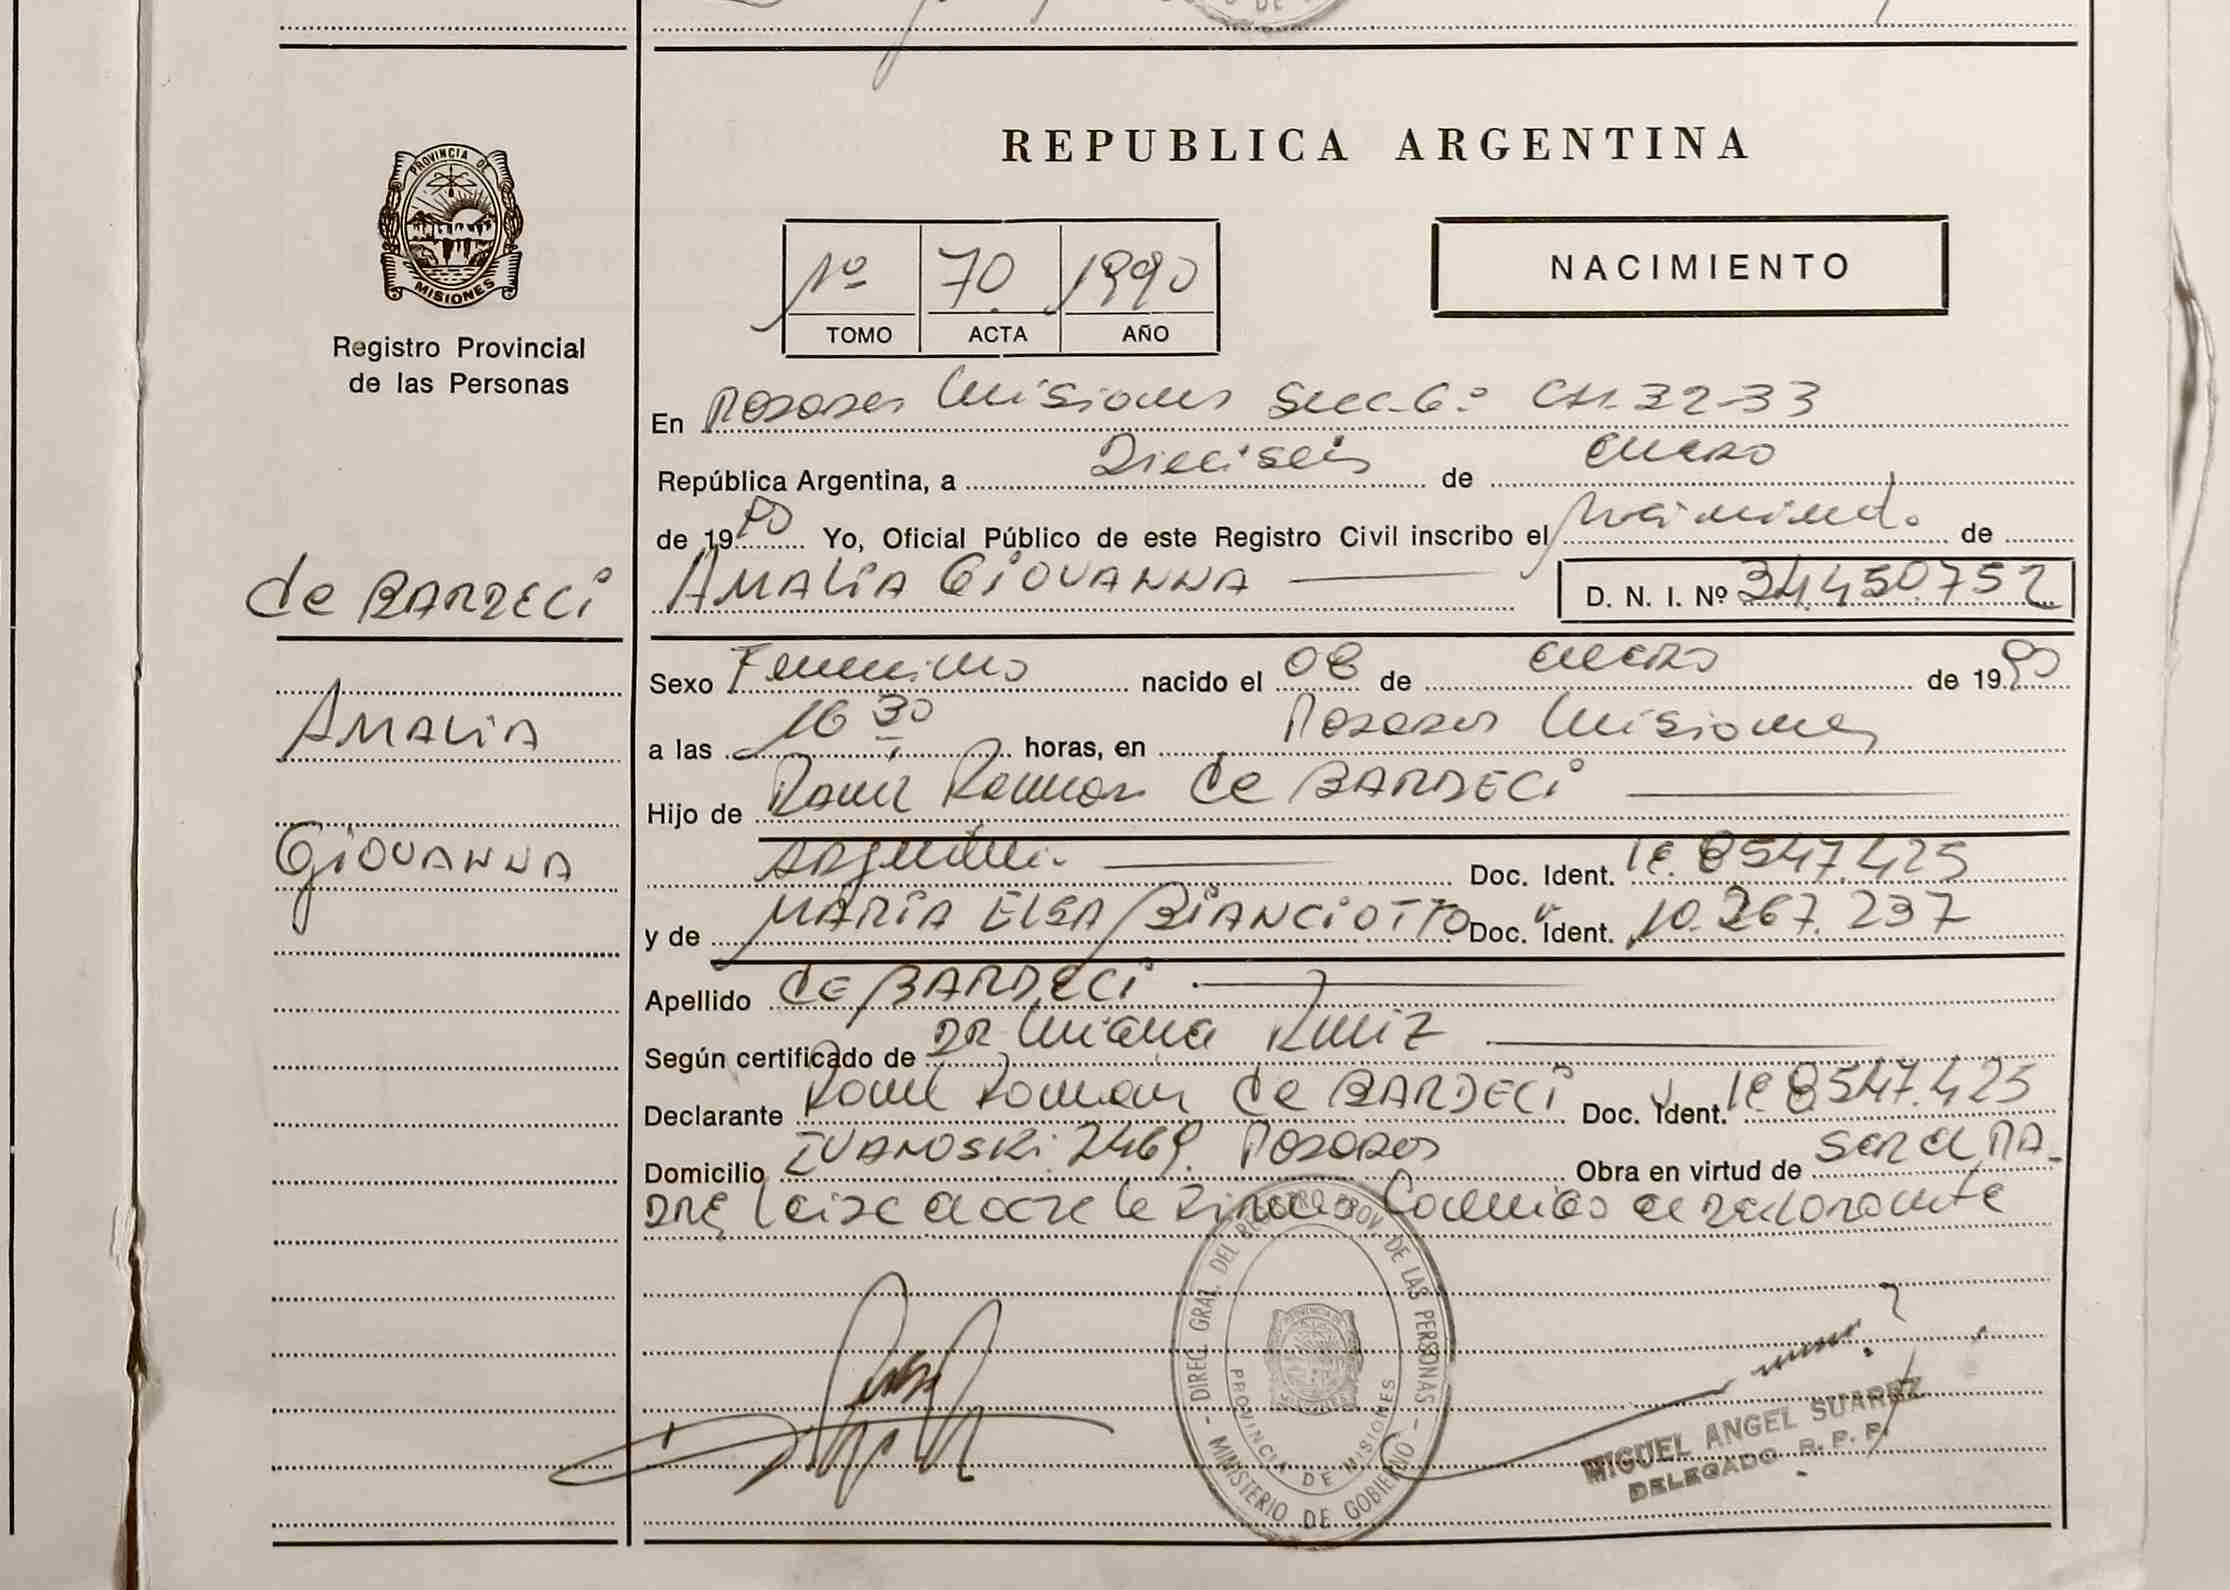 REPUBLICA ARGENTINA
PROVINCIA DE
MISIONES
Registro Provincial
de las Personas
Nº 70 1990
TOMO ACTA AÑO
NACIMIENTO
En Posadas Misiones Secc. 6º CH. 32-33
República Argentina, a Dieciseis de enero
de 1990 Yo, Oficial Público de este Registro Civil inscribo el Nacimiento de
AMALIA GIOVANNA D. N. I. Nº 34.450.752
de BARDECI
AMALIA
GIOVANNA
Sexo Femenino nacido el 08 de enero de 1990
a las 16 30 horas, en Posadas Misiones
Hijo de Raul Roman de BARDECI
Argentino Doc. Ident. le. 8547.425
y de MARIA ELSA BIANCIOTTO Doc. Ident. 10.267.237
Apellido de BARDECI
Según certificado de DR RUIZ
Declarante Raul Roman de BARDECI Doc. Ident. le 8547.425
Domicilio IVANOSKI 2469. Posadas Obra en virtud de SER el PA-
DRE el declarante
DIREC. GRAL. DEL REGISTRO PROV. DE LAS PERSONAS
PROVINCIA DE MISIONES
MINISTERIO DE GOBIERNO
MIGUEL ANGEL SUAREZ
DELEGADO R. P. P.